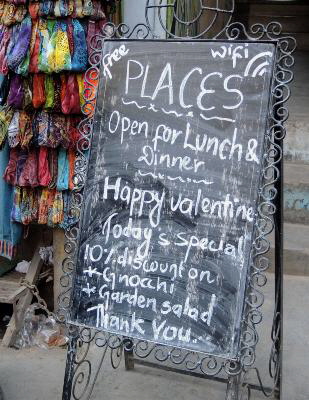 free wifi
PLACES
Open for Lunch &
Dinner
Happy valentine
Today's special
10% discount on
* Gnocchi
* Garden salad
Thank You...